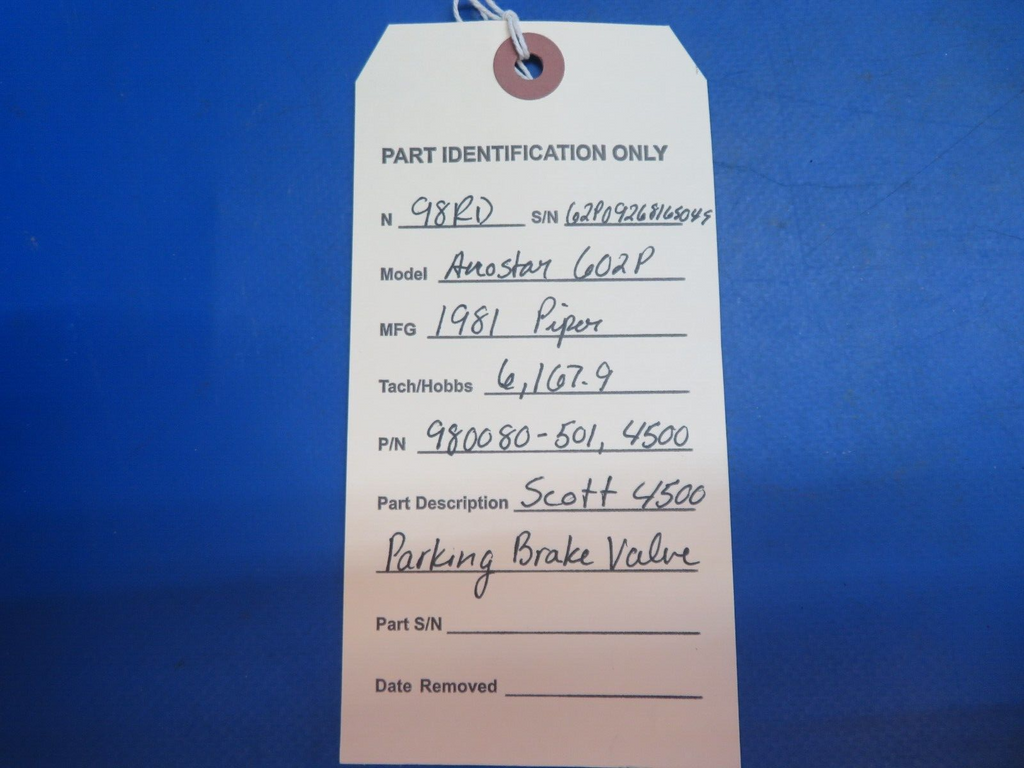 PART IDENTIFICATION ONLY
N 98RD S/N 62P09268165049
Model Aerostar 602P
MFG 1981 Piper
Tach/Hobbs 6,167.9
P/N 980080-501, 4500
Part Description Scott 4500
Parking Brake Valve
Part S/N
Date Removed